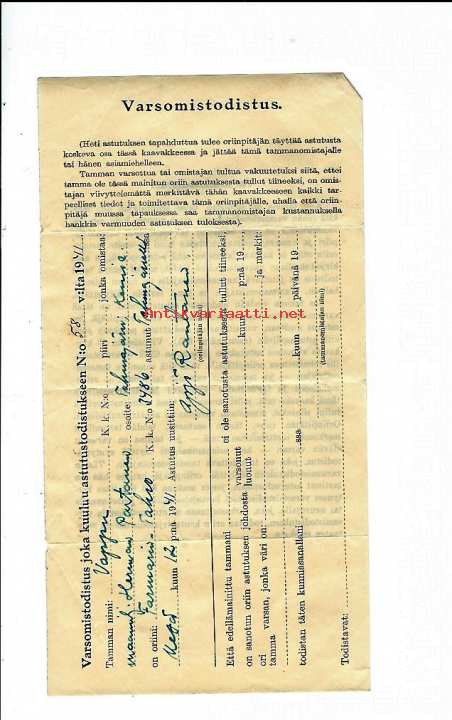 Varsomistodistus.
(Heti astutuksen tapahduttua tulee oriinpitäjän täyttää astutusta
koskeva osa tässä kaavakkeessa ja jättää tämä tammanomistajalle
tai hänen asiamiehelleen.
Tamman varsottua tai omistajan tultua vakuutetuksi siitä, ettei
tamma ole tässä mainitun oriin astutuksesta tullut tiineeksi, on omis-
tajan viivyttelemättä merkittävä tähän kaavakkeeseen kaikki tar-
peelliset tiedot ja toimitettava tämä oriinpitäjälle, uhalla että oriin-
pitäjä muussa tapauksessa saa tammanomistajan kustannuksella
hankkia varmuuden astutuksen tuloksesta).
Varsomistodistus joka kuuluu astutustodistukseen N:o 58 v:lta 1941
Tamman nimi: Vappu K. k. N:o piiri jonka omistaa:
Herman Partanen osoite:
on oriini: Tarmarin-Tahvo K. k. N:o 2486 astunut
kuun 12 p:nä 1941 Astutus uusittiin:
Yrjö Rautanen
(oriinpitäjän nimi)
Että edellämainittu tammani ei ole sanotusta astutuksesta tullut tiineeksi,
on sanotun oriin astutuksen johdosta varsonut luonut kuun p:nä 19
ori tamma varsan, jonka väri on: ja merkit:
todistan täten kunniasanallani ssa kuun päivänä 19
(tammanomistajan nimi)
Todistavat:
antikvariaatti.net